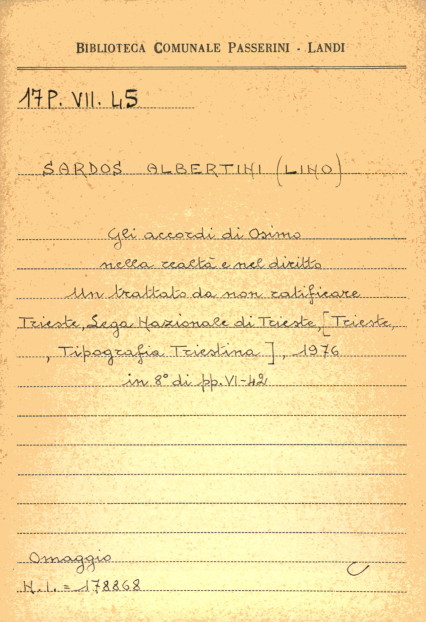 BIBLIOTECA COMUNALE PASSERINI - LANDI
17P. VII. 45
SARDOS ALBERTINI (LINO)
Gli accordi di Osimo
nella realtà e nel diritto
Un trattato da non ratificare
Trieste, Lega Nazionale di Trieste, [Trieste,
, Tipografia Triestina], 1976
in 8° di pp. VI-42
Omaggio
N.I. = 178868